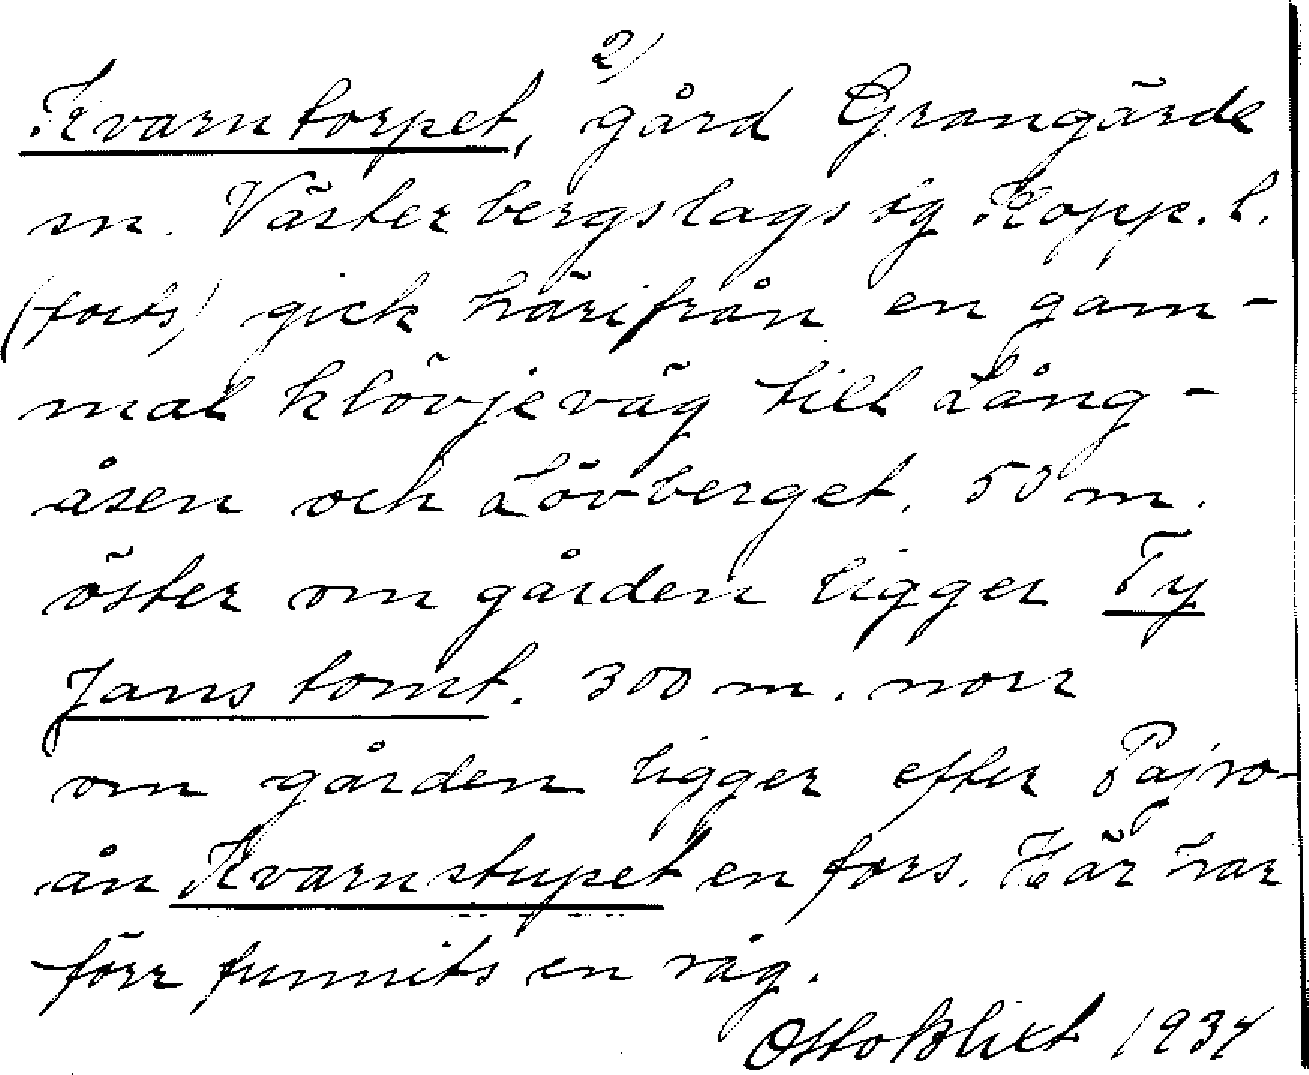 2)
Kvarntorpet, gård Grangärde
sn. Västerbergslags sig Kopp. l.
(forts) gick härifrån en gam-
mal klövjeväg till Lång-
åsen och Lövberget. 50 m.
öster om gården ligger Ty
Jans tomt. 300 m. norr
om gården ligger efter Pajso-
ån Kvarnstupet en fors. Här har
förr funnits en såg.
Otto Blixt 1934